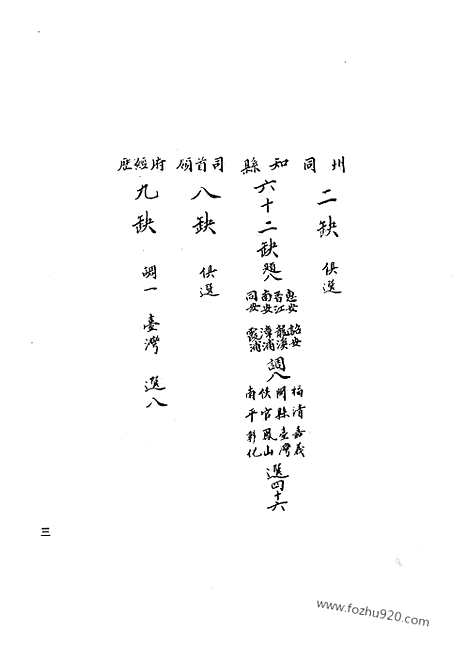 州同
二缺 俱選
知縣
六十二缺 題八
惠安 詔安
晋江 龍溪
南安 漳浦
同安 霞浦
調八
福清 嘉義
閩縣 臺灣
侯官 鳳山
南平 彰化
選四十六
司首領
八缺 俱選
府經歷
九缺 調一 臺灣 選八
三
www.fozhu920.com